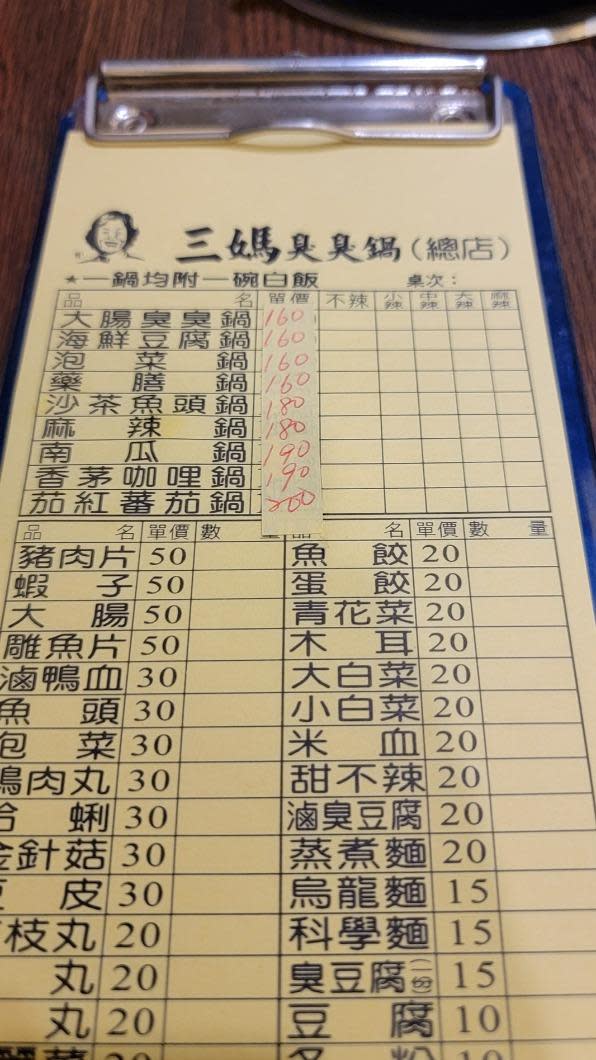 三媽臭臭鍋(總店)
★一鍋均附一碗白飯 桌次：
品名 單價 不辣 小辣 中辣 大辣 麻辣
大腸臭臭鍋 160
海鮮豆腐鍋 160
泡菜鍋 160
藥膳鍋 160
沙茶魚頭鍋 180
麻辣鍋 180
南瓜鍋 190
香茅咖哩鍋 190
茄紅蕃茄鍋 200
品名 單價 數量 品名 單價 數量
豬肉片 50 魚餃 20
蝦子 50 蛋餃 20
大腸 50 青花菜 20
雕魚片 50 木耳 20
滷鴨血 30 大白菜 20
魚頭 30 小白菜 20
泡菜 30 米血 20
肉丸 30 甜不辣 20
蜊 30 滷臭豆腐 20
金針菇 30 蒸煮麵 20
皮 30 烏龍麵 15
枝丸 20 科學麵 15
丸 20 臭豆腐(一份) 15
丸 20 豆腐 10